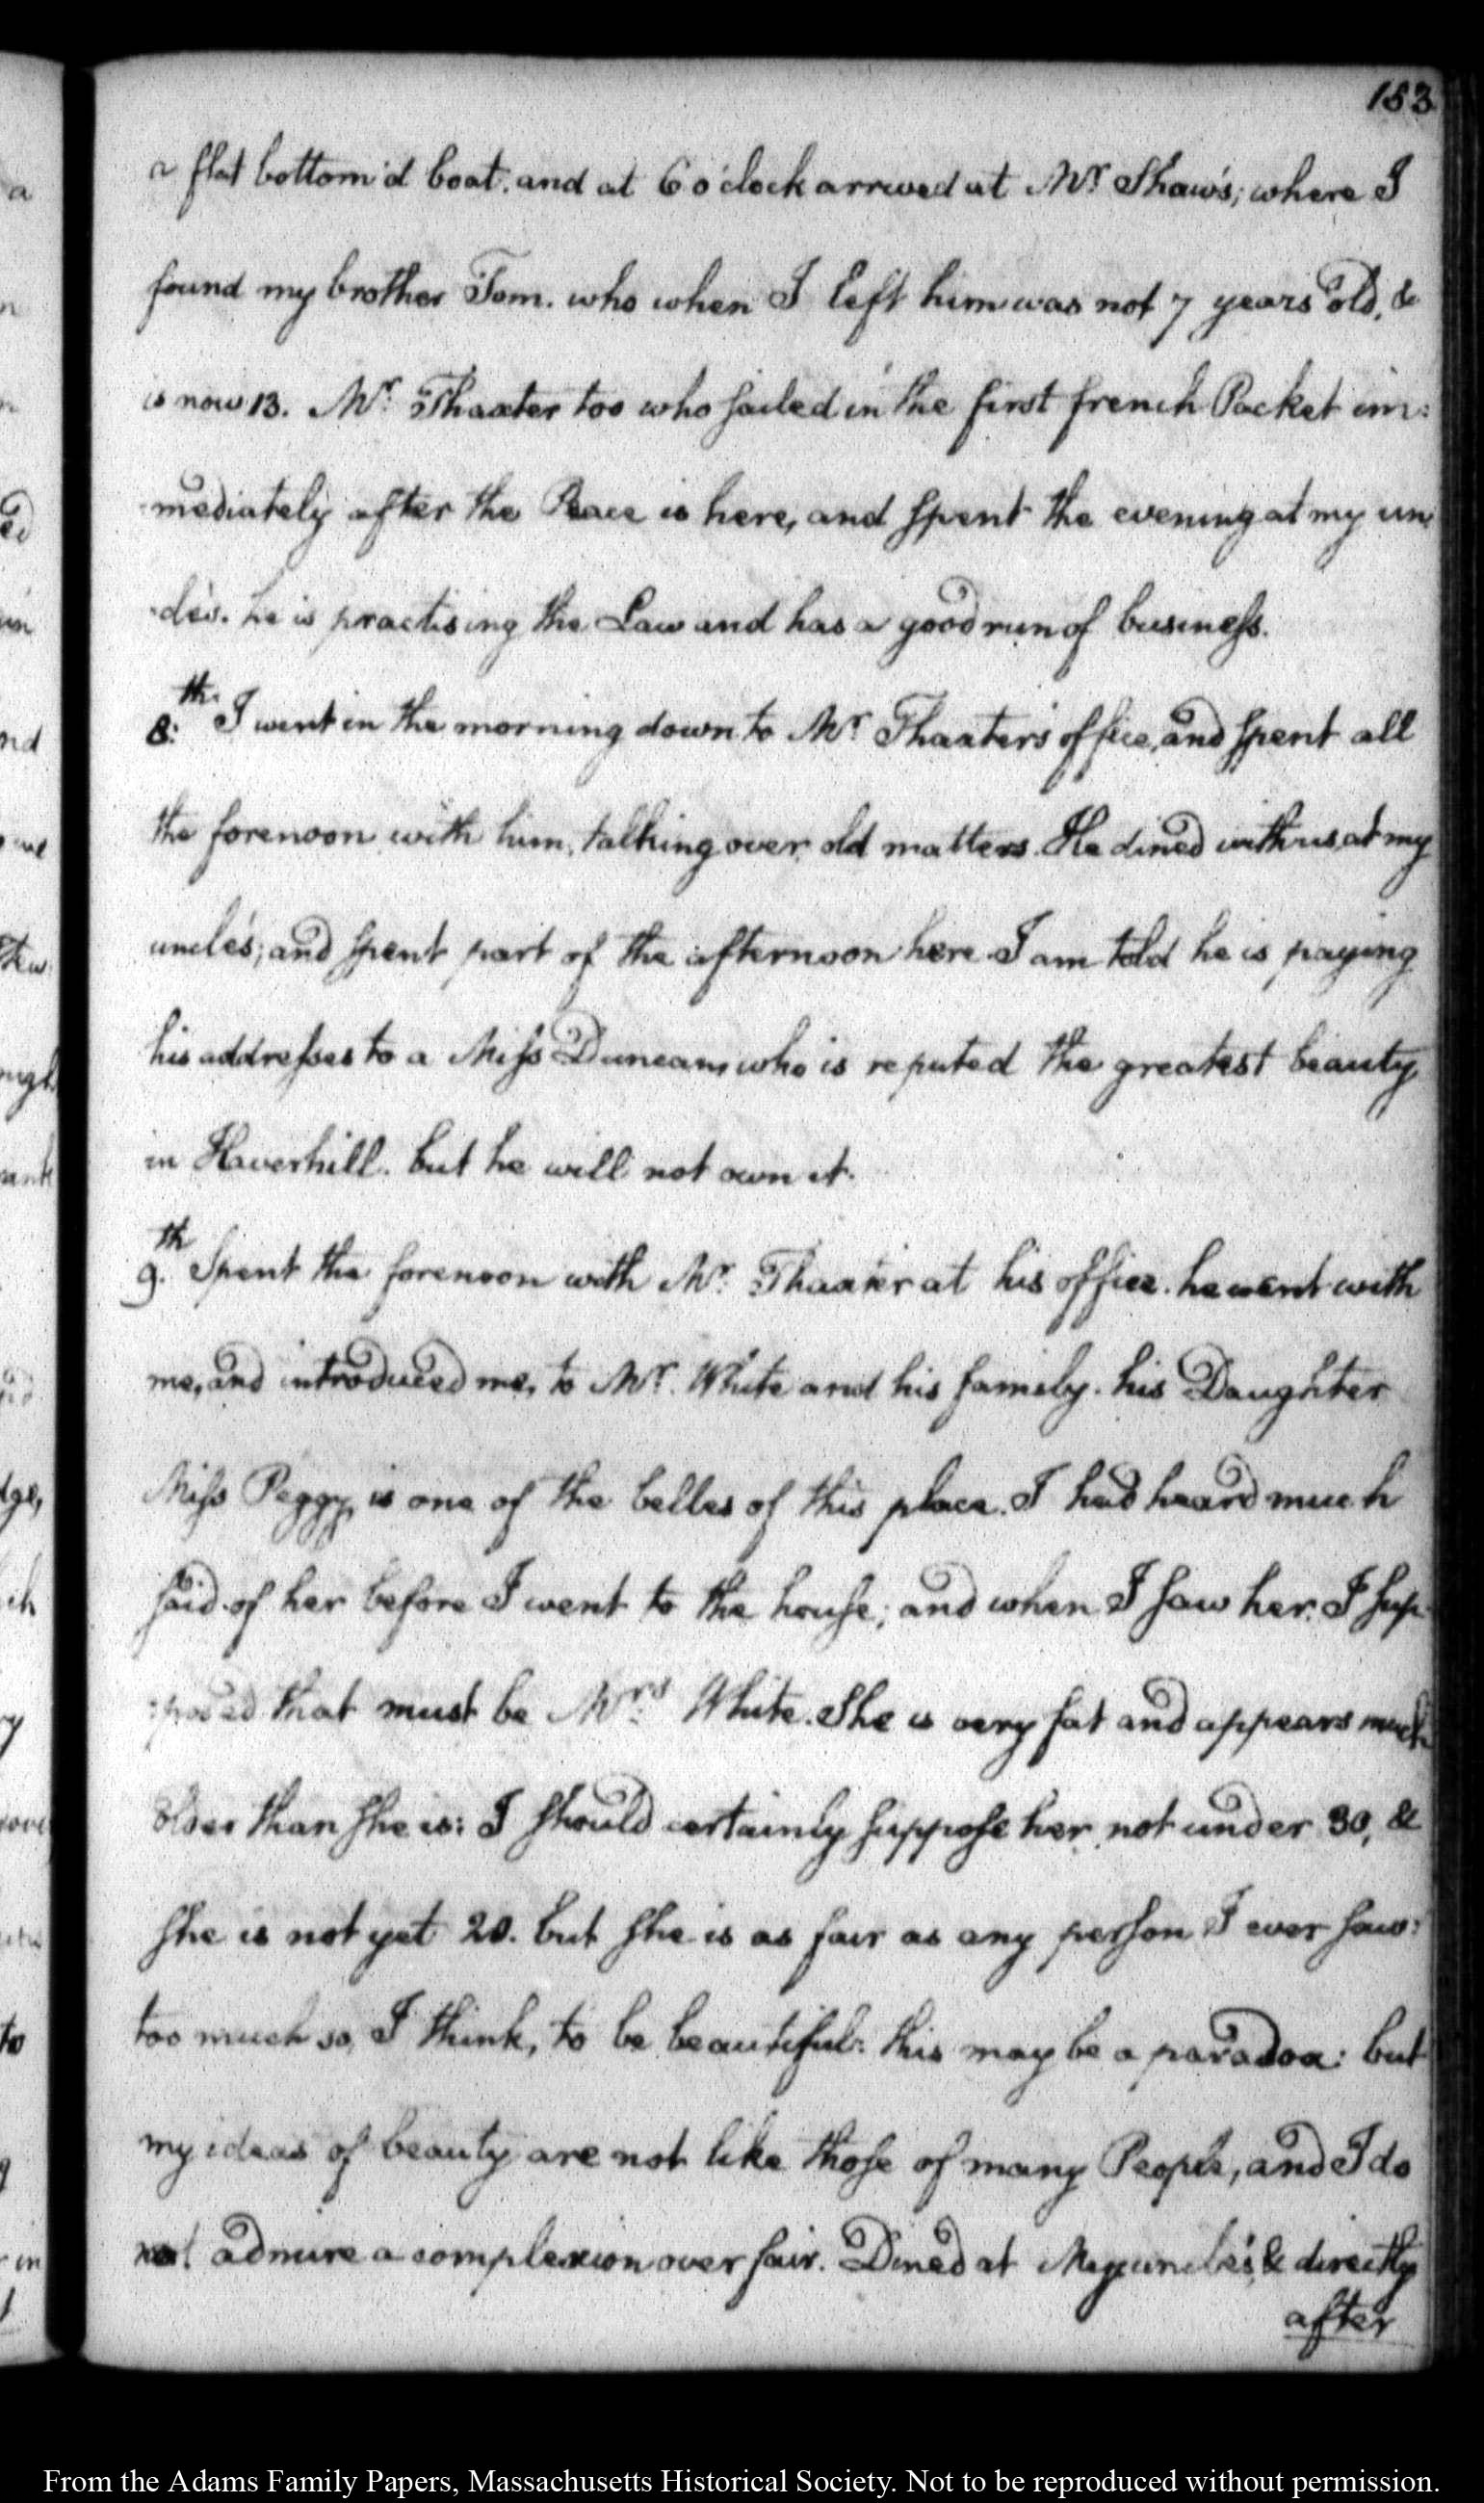 183
a flat bottom'd boat. and at 6 o'clock arrived at Mr. Shaw's; where I
found my brother Tom. who when I left him was not 7 years old, &
is now 13. Mr. Thaxter too who sailed in the first french Packet im:
mediately after the Peace is here, and spent the evening at my un:
:cle's. he is practising the Law and has a good run of business.
8:th I went in the morning down to Mr. Thaxter's office, and spent all
the forenoon with him, talking over old matters. He dined with us, at my
uncle's; and spent part of the afternoon here. I am told he is paying
his addresses to a Miss Duncan, who is reputed the greatest beauty
in Haverhill. but he will not own it.
9.th Spent the forenoon with Mr. Thaxter at his office. he went with
me, and introduced me, to Mr. White and his family. his Daughter
Miss Peggy, is one of the belles of this place. I had heard much
said of her before I went to the house; and when I saw her, I sup:
:posed that must be Mrs. White. She is very fat and appears much
older than she is: I should certainly suppose her not under 30, &
she is not yet 20. but she is as fair as any person I ever saw:
too much so, I think, to be beautiful: this may be a paradox: but
my ideas of beauty are not like those of many People, and I do
not admire a complexion over fair. Dined at My uncle's, & directly
after
From the Adams Family Papers, Massachusetts Historical Society. Not to be reproduced without permission.